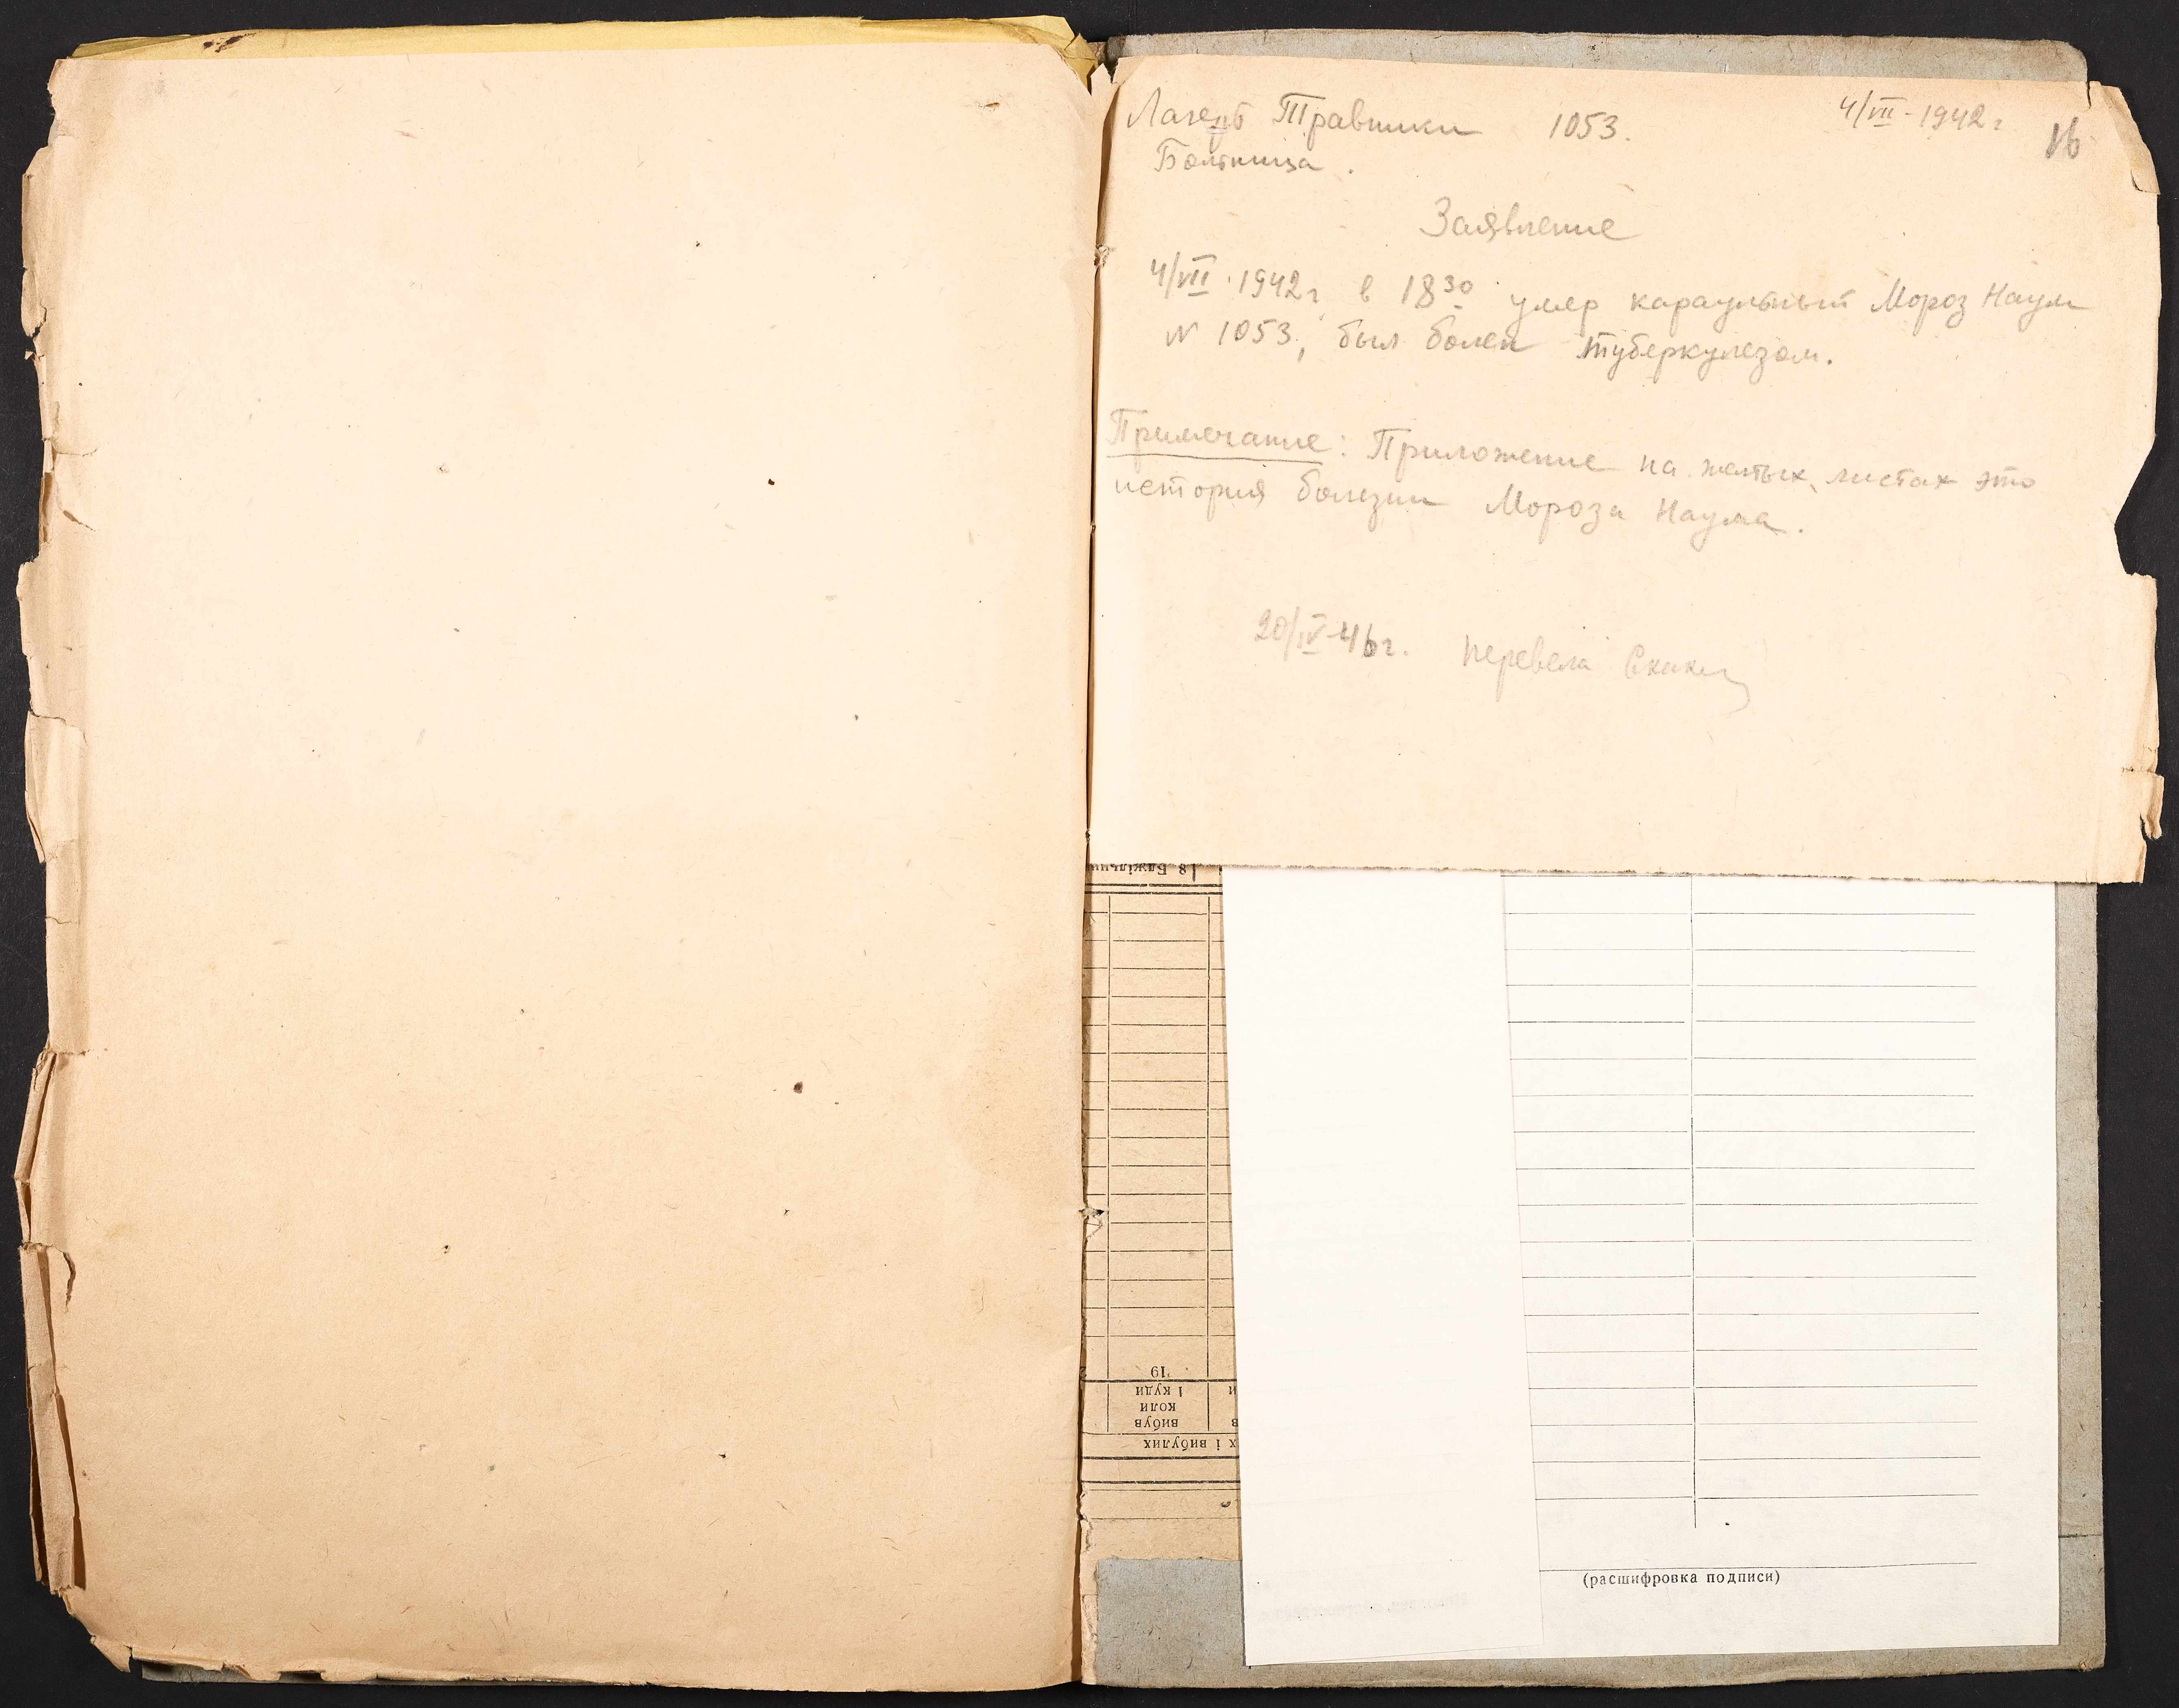 Лагерь Травники 1053. 4/VII-1942г
16
Больница.
Заявление
4/VII 1942г в 18 30 умер караульный Мороз Наум
N 1053, был болен туберкулезом.
Примечание: Приложение на желтых листах это
история болезни Мороза Наума.
20/IV-46г. перевела
18 Бджільни
19
вибув
коли
і куди
х і вибулих
(расшифровка подписи)